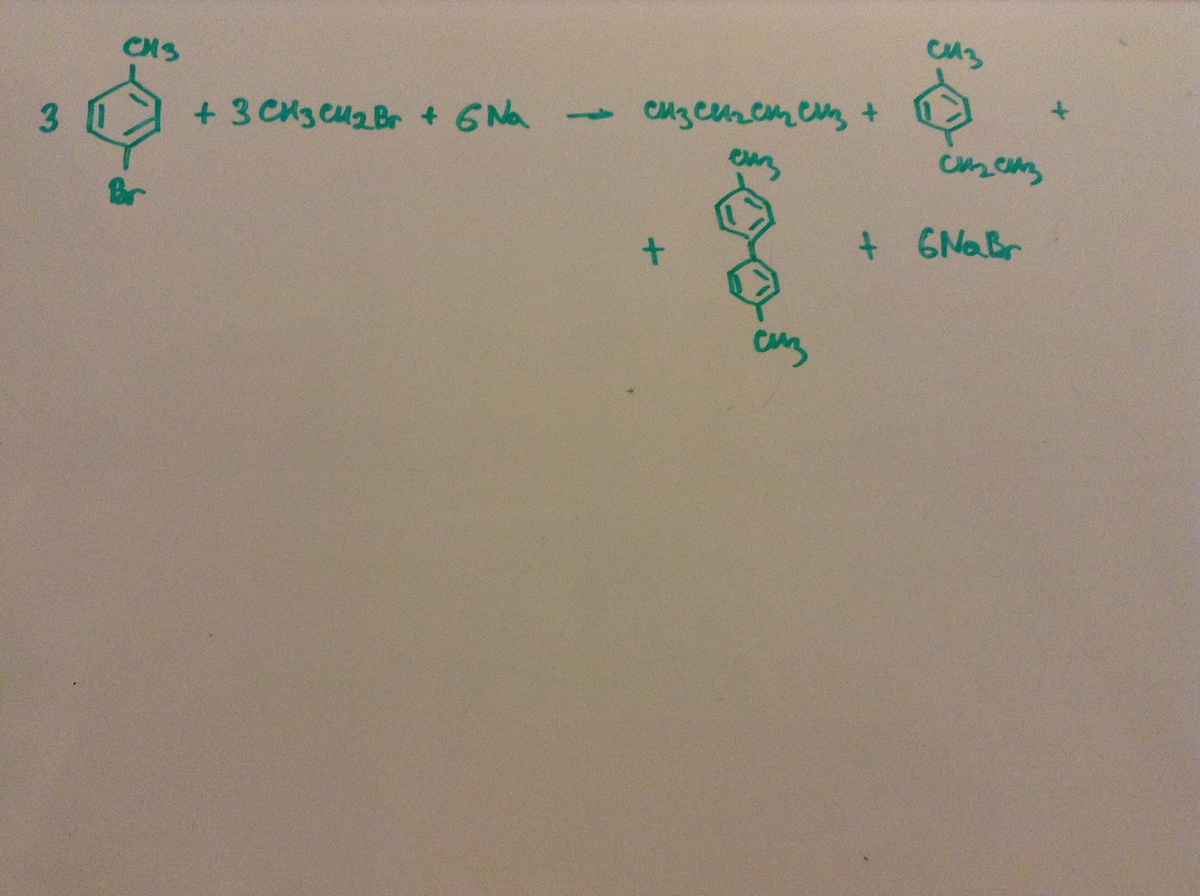 CH3 CH3
3 + 3 CH3CH2Br + 6Na → CH3CH2CH2CH3 + +
CH2CH3
CH3
Br
+ + 6NaBr
CH3